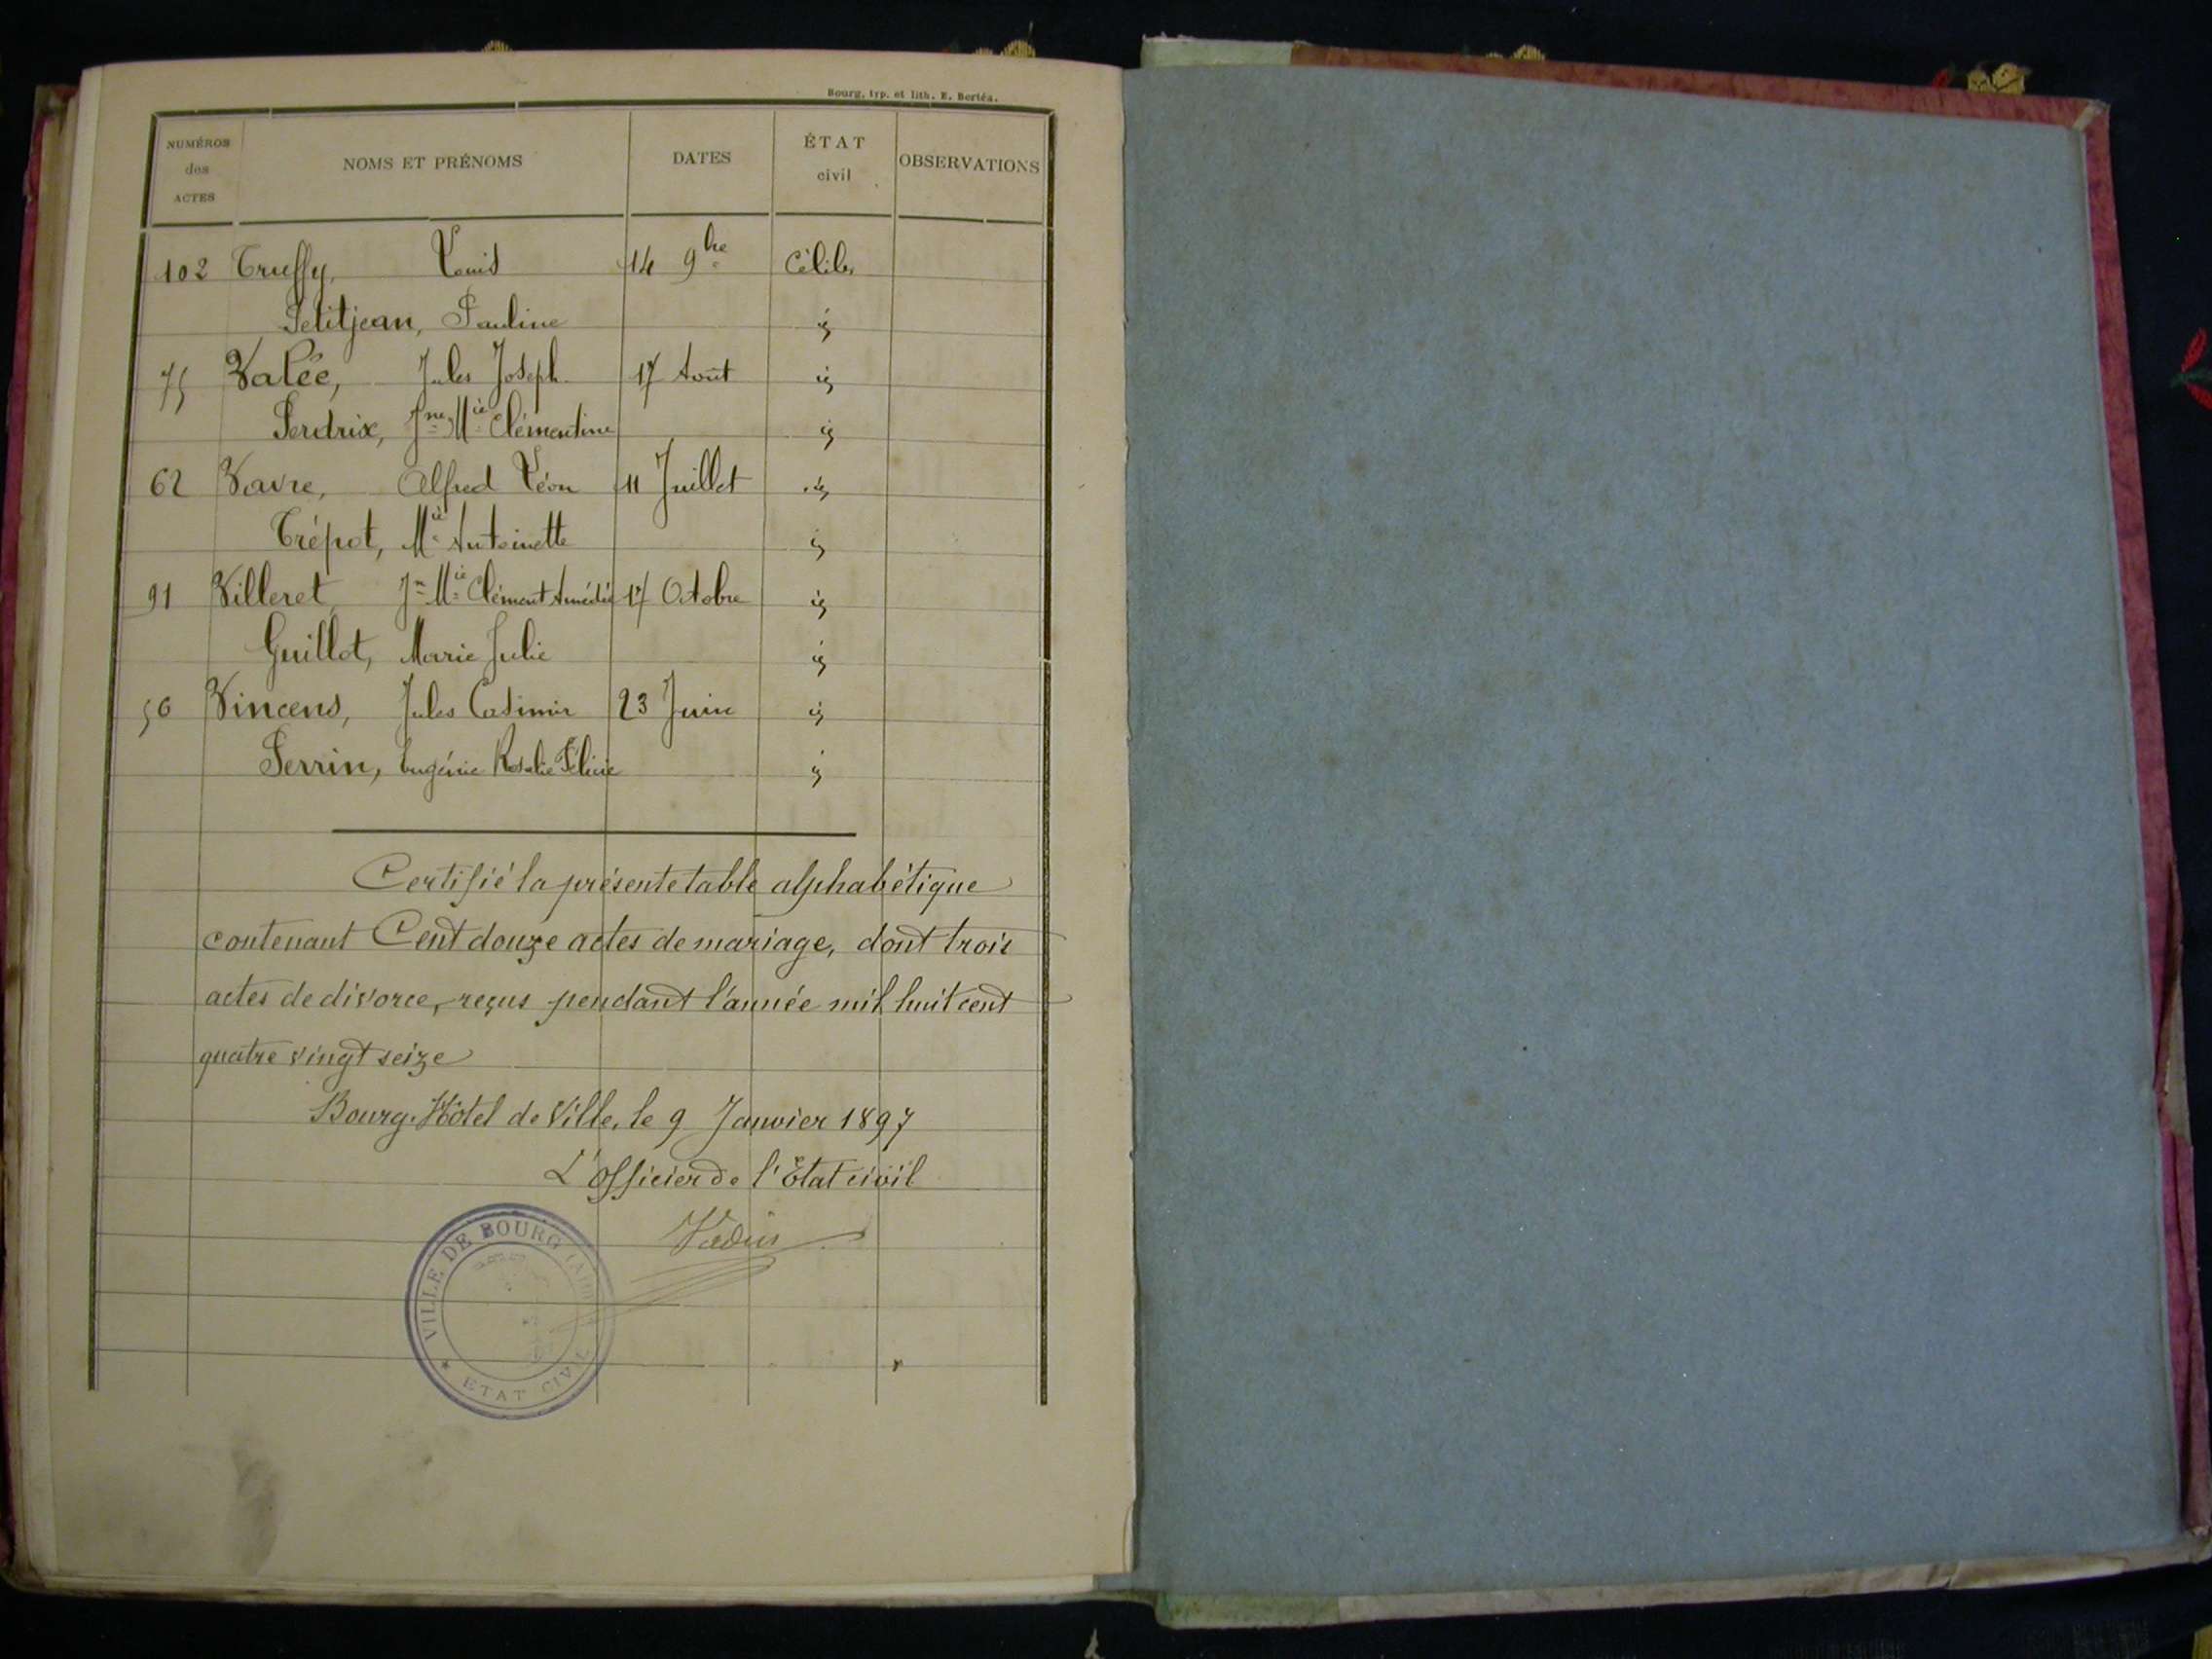 Bourg, typ. et lith. E. Bertéa.
NUMÉROS des ACTES NOMS ET PRÉNOMS DATES ÉTAT civil OBSERVATIONS
102 Truffy, Louis 14 9bre Célib.
Petitjean, Pauline id
75 Valée, Jules Joseph 17 Août id
Perdrix, Jne Mie Clémentine id
62 Vavre, Alfred Léon 11 Juillet id
Trépot, Mie Antoinette id
91 Villeret Jn Mie Clément Amédée 17 Octobre id
Guillot, Marie Julie id
56 Vincens, Jules Casimir 23 Juin id
Perrin, Eugénie Rosalie Félicie id
Certifié la présente table alphabétique
contenant Cent douze actes de mariage, dont trois
actes de divorce, reçus pendant l'année mil huit cent
quatre vingt seize
Bourg. Hôtel de Ville, le 9 Janvier 1897
L'officier de l'Etat civil
VILLE DE BOURG (AIN)
* ETAT CIVIL